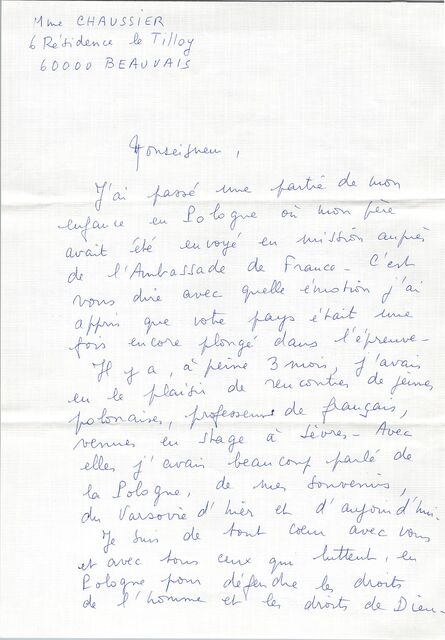 Mme CHAUSSIER
6 Résidence le Tilloy
60000 BEAUVAIS
Monseigneur,
J'ai passé une partie de mon
enfance en Pologne où mon père
avait été envoyé en mission auprès
de l'Ambassade de France - C'est
vous dire avec quelle émotion j'ai
appris que votre pays était une
fois encore plongé dans l'épreuve -
Il y a, à peine 3 mois, j'avais
eu le plaisir de rencontrer de jeunes
polonaises, professeurs de français,
venues en stage à Sèvres - Avec
elles j'avais beaucoup parlé de
la Pologne, de mes souvenirs,
du Varsovie d'hier et d'aujourd'hui
Je suis de tout coeur avec vous
et avec tous ceux qui luttent, en
Pologne pour défendre les droits
de l'homme et les droits de Dieu -